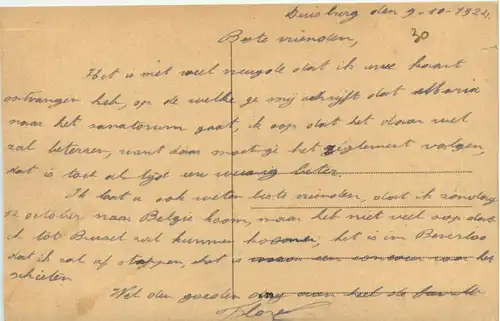 Duisburg den 9-10-1924
30
Beste vrienden,
Het is met veel vreugde dat ik uw kaart
ontvangen heb, op de welke ge mij schrijft dat Maria
naar het sanatorium gaat, ik oop dat het daar wel
zal beteren, want daar moet ge het reglement volgen,
dat is toch al tijd een weinig beter.
Ik laat u ook weten beste vrienden, dat ik zondag
12 october naar Belgie koom, maar het niet veel oop dat
ik tot Brussel zal kunnen koomen, het is in Beverloo
dat ik zal af stappen, dat is voor een concour voor het
schieten
Met den goeden dag aan heel de famille